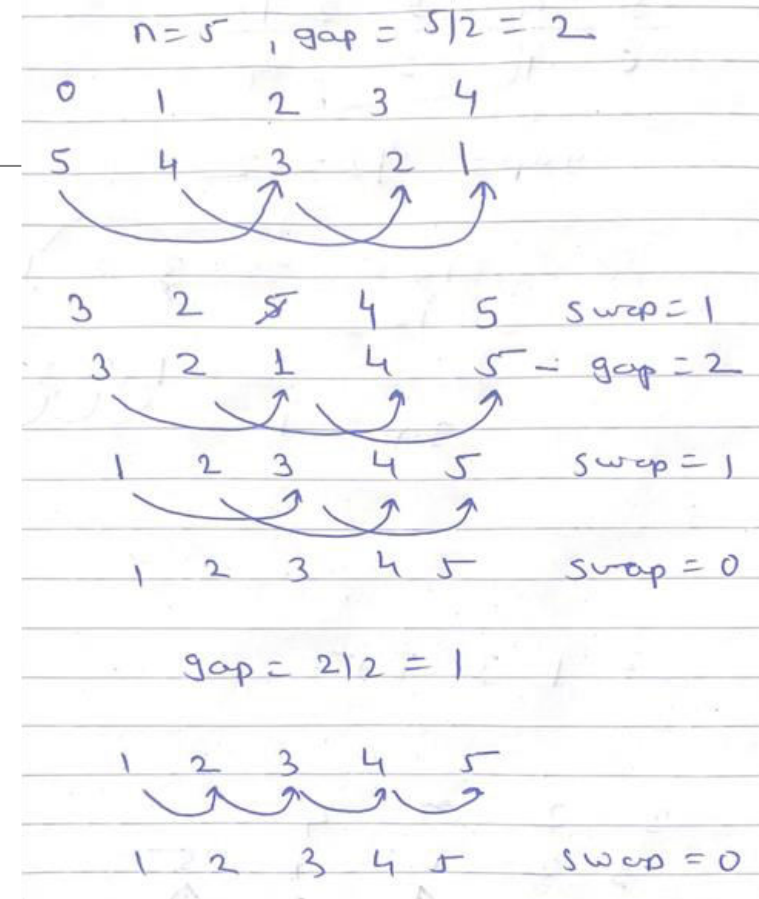 n=5 , gap = 5/2 = 2
0 1 2 3 4
5 4 3 2 1
3 2 5 4 5 swap=1
3 2 1 4 5 - gap=2
1 2 3 4 5 swap=1
1 2 3 4 5 swap=0
gap= 2/2 = 1
1 2 3 4 5
1 2 3 4 5 swap=0